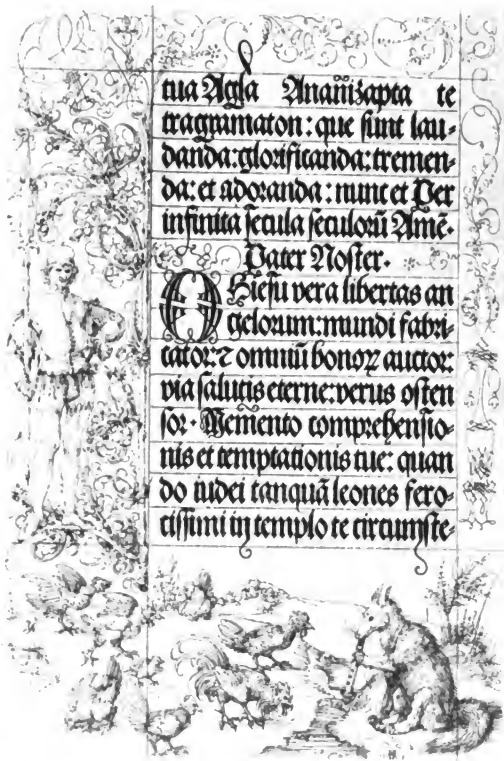 tua Agla Anañizapta te
tragramaton: que sunt lau-
danda: glorificanda: tremen-
da: et adoranda: nunc et Per
infinita secula seculorū Amē.
Pater Noster.
O Hiesu vera libertas an
gelorum: mundi fabri-
cator: ⁊ omniū bonoꝝ auctor:
via salutis eterne: verus osten
sor. Memento comprehensio-
nis et temptationis tue: quan
do iudei tanquā leones fero-
cissimi in templo te circumste-